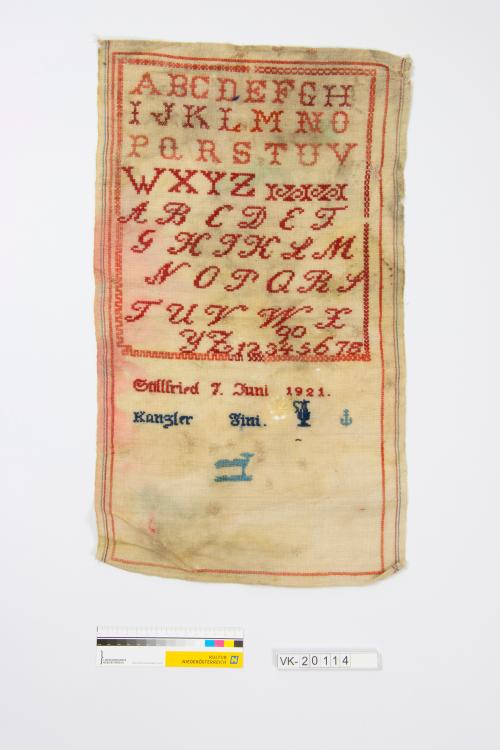 ABCDEFGH
IJKLMNO
PQRSTUV
WXYZ
ABCDEF
GHIKLM
NOPQRS
TUVWX
90
YZ12345678
Stillfried 7. Juni 1921.
Kanzler Fini.
KULTUR
NIEDERÖSTERREICH
VK-20114